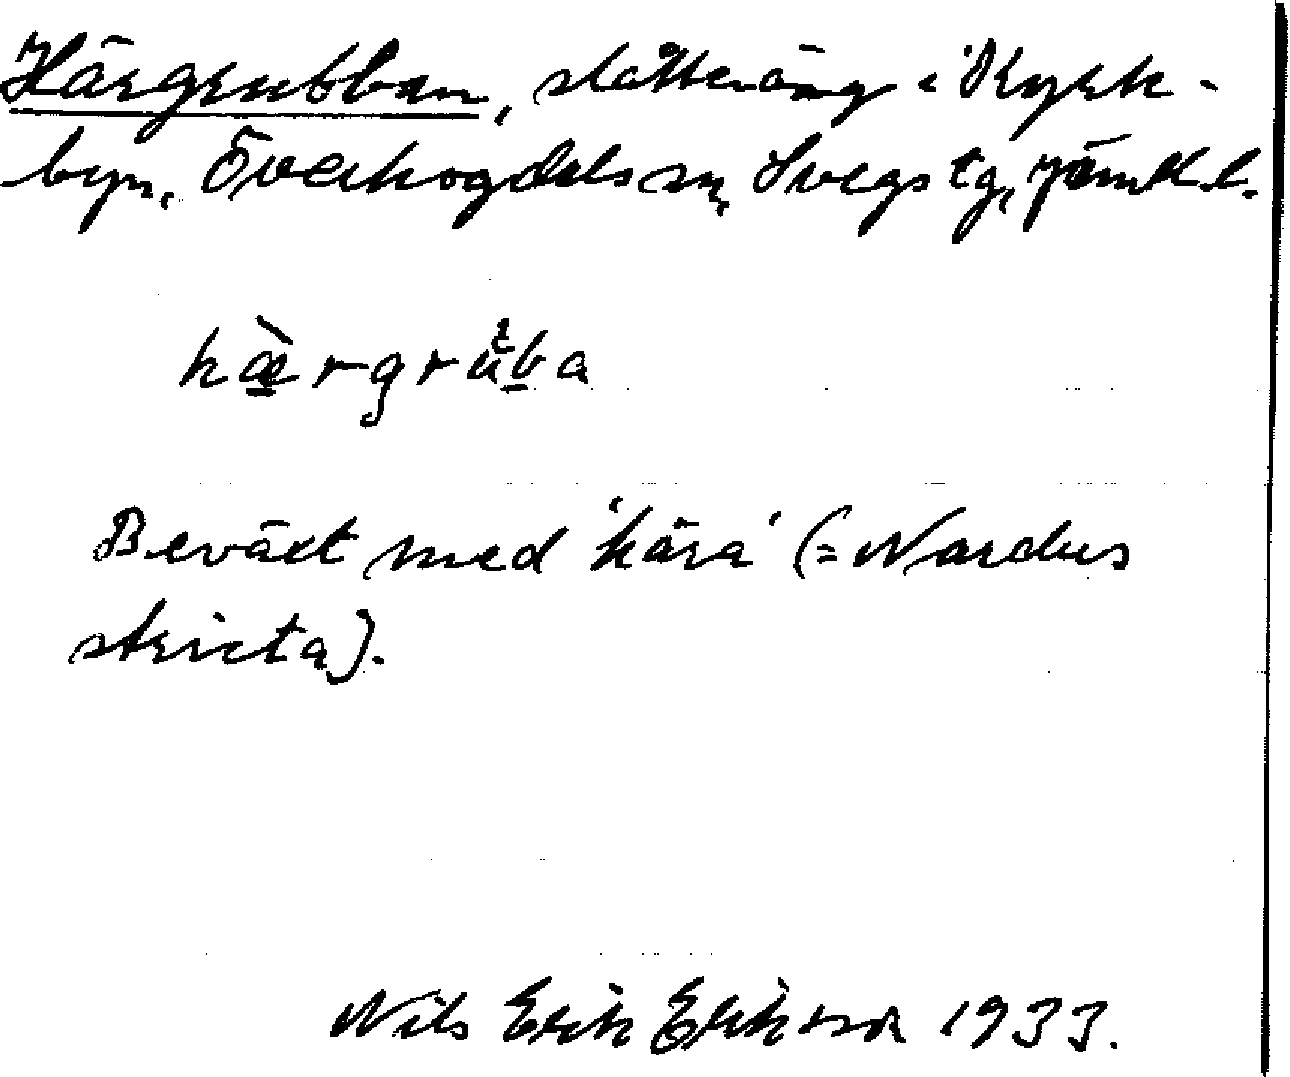 Härgrubban, slåtteräng i Kyrk-
byn, Överhogdals sn, Svegs tg, Jämtl. l.
hæ̀rgruba
Beväxt med 'hära' (= Nardus
stricta).
Nils Erik Erikson 1933.